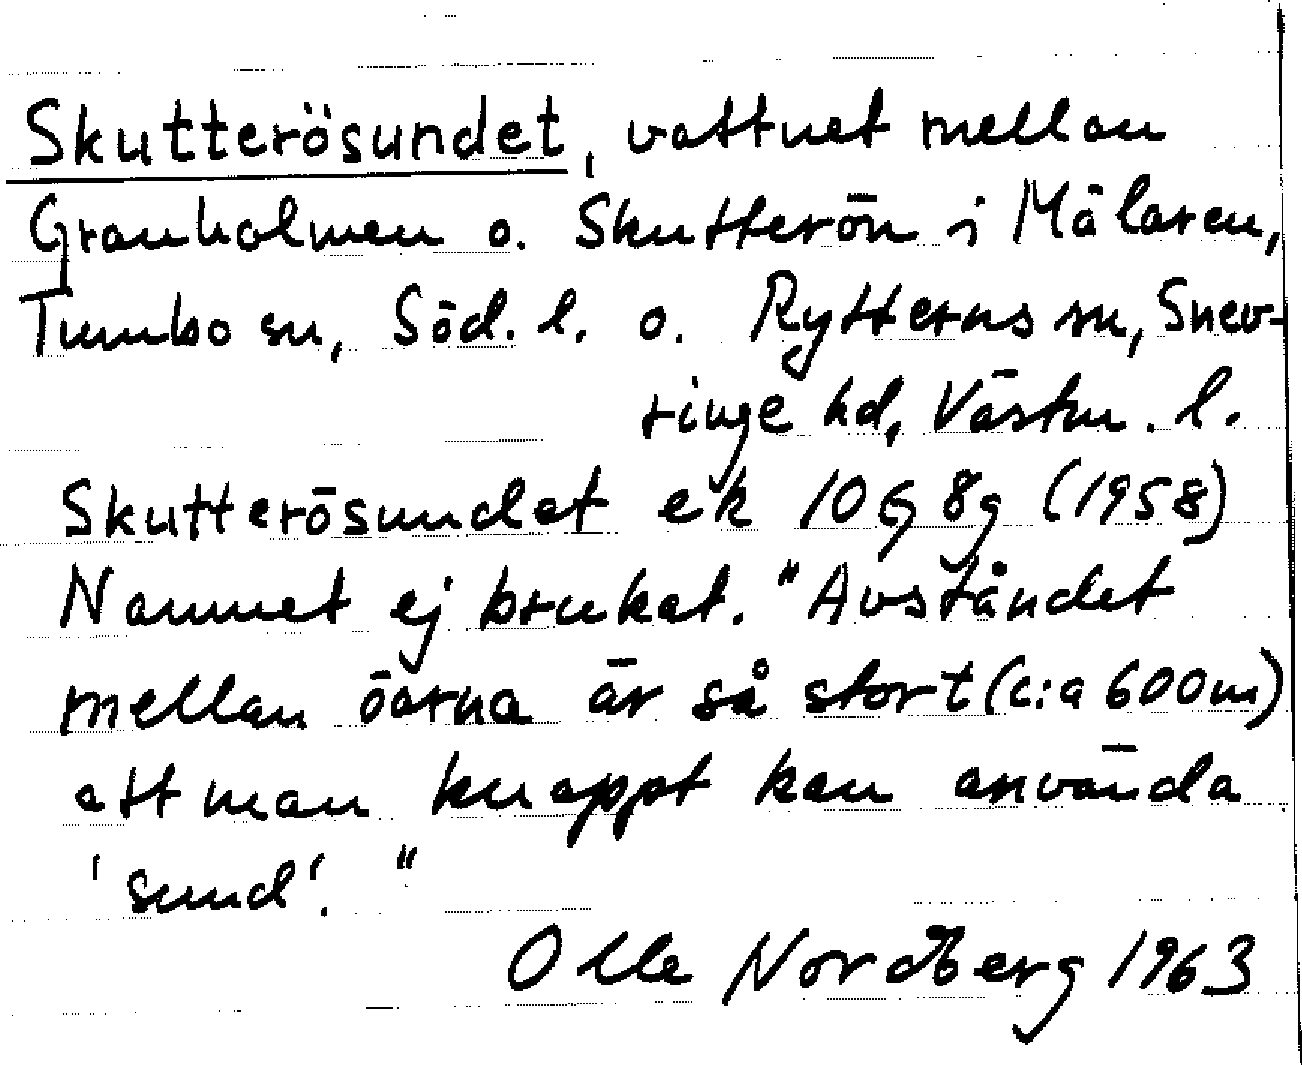 Skutterösundet, vattnet mellan
Granholmen o. Skutterön i Mälaren,
Tumbo sn, Söd. l. o. Rytterns sn, Snev-
ringe hd, Västm. l.
Skutterösundet ek 10G 8g (1958)
Namnet ej brukat. "Avståndet
mellan öarna är så stort (c:a 600m)
att man knappt kan använda
'sund'."
Olle Nordberg 1963